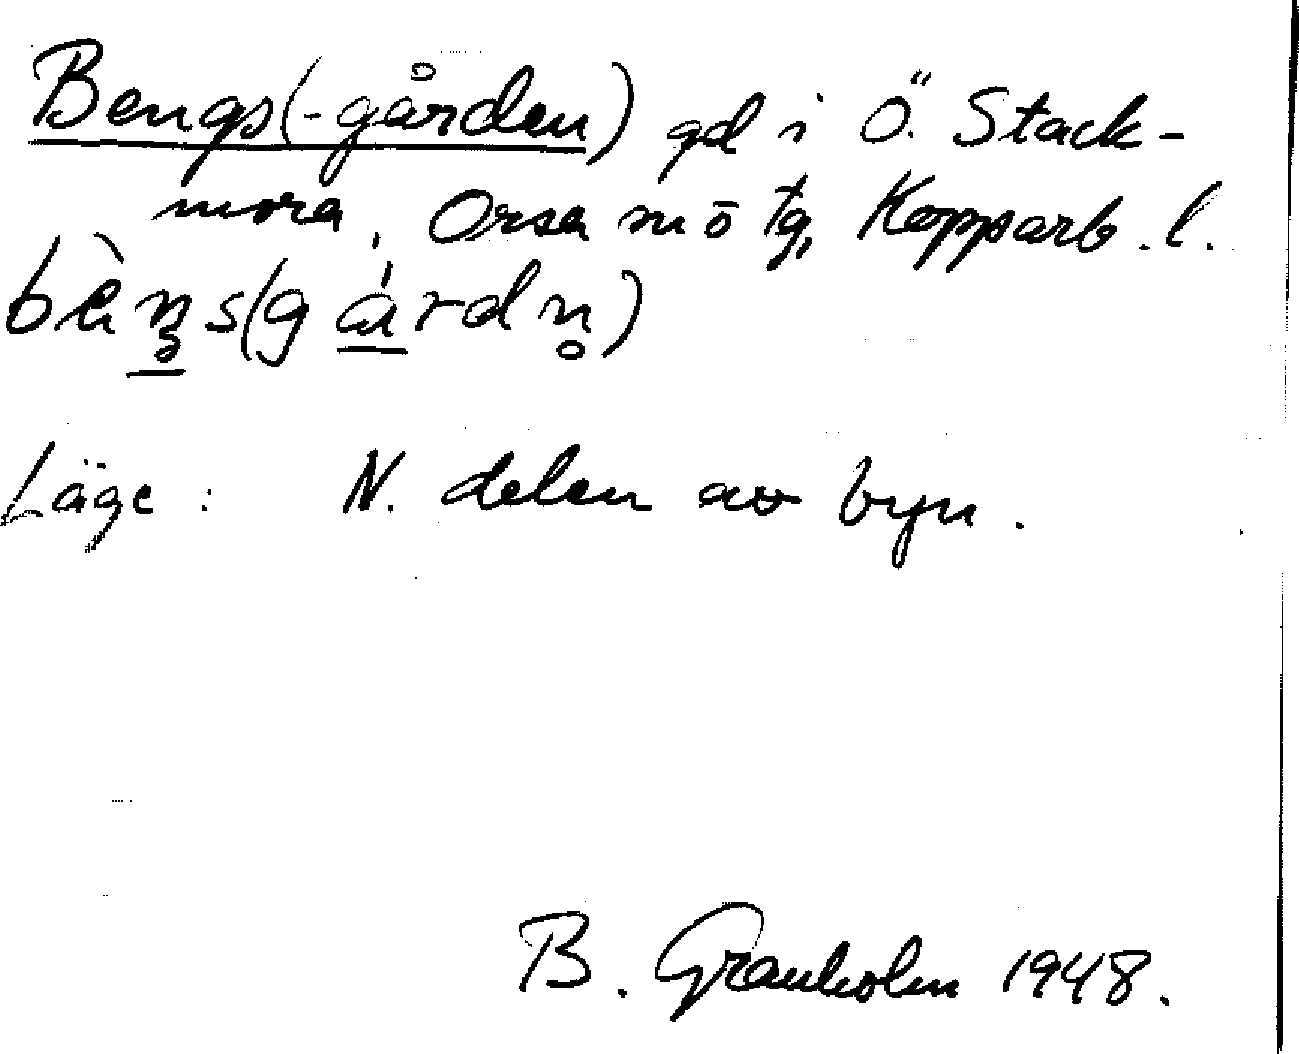 Bengs(-gården) gd i Ö. Stack-
mora, Orsa sn o tg, Kopparb. l.
bèŋs(gárdn̥)
Läge: N. delen av byn.
B. Granholm 1948.